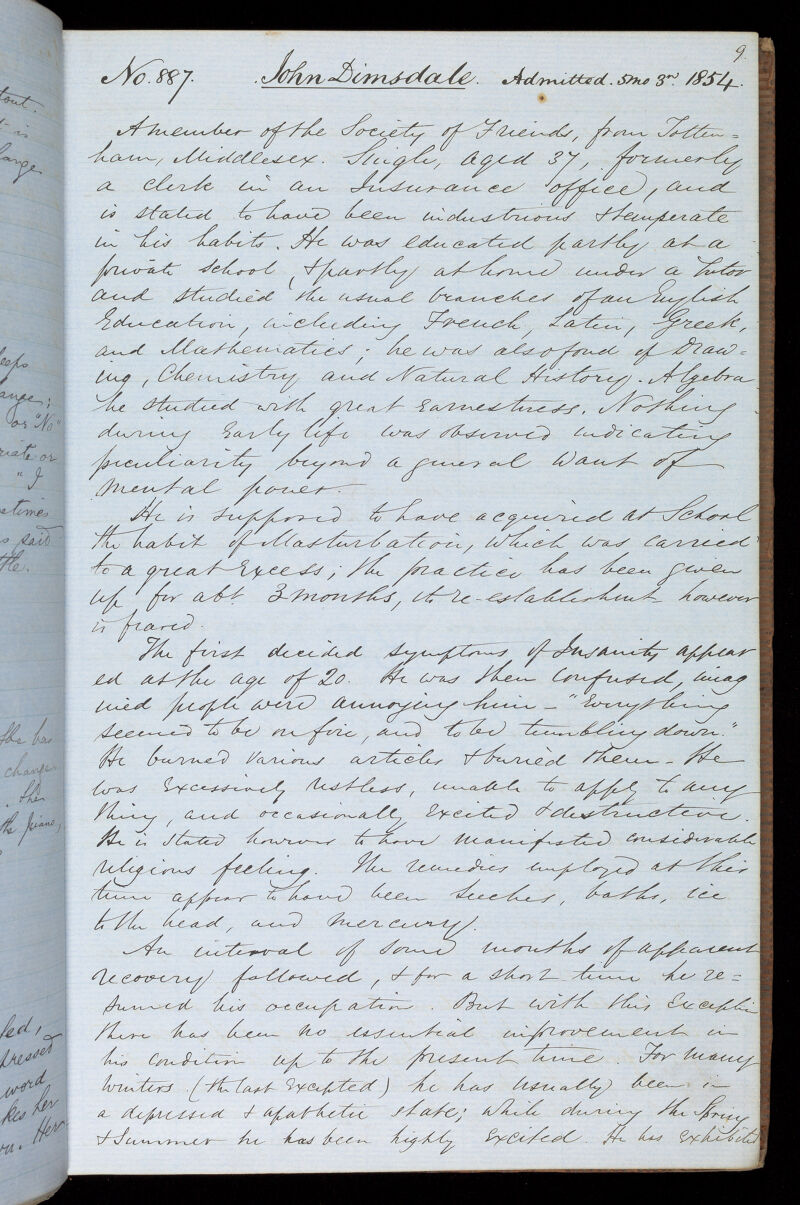 9.
No. 887. John Dimsdale. Admitted. 5mo 3rd 1854.
A member of the Society of Friends, from Totten=
ham, Middlesex. Single, aged 37, formerly
a clerk in an Insurance office, and
is stated to have been industrious & temperate
in his habits. He was educated partly at a
private school, & partly at home under a Tutor
and studied the usual branches of an English
Education, including French, Latin, Greek,
and Mathematics; he was also fond of Draw-
ing, Chemistry and Natural History. Algebra
he studied with great Earnestness. Nothing
during Early life was observed indicating
peculiarity beyond a general want of
mental power.
He is supposed to have acquired at School
the habit of Masturbation, which was carried
to a great Excess; the practice has been given
up for abt. 3 months, its re-establishment however
is feared.
The first decided symptoms of Insanity appear
ed at the age of 20. He was then confused, imag
ined people were annoying him - "Everything
seemed to be on fire, and to be tumbling down."
He burned various articles & buried them - He
was Excessively restless, unable to apply to any
thing, and occasionally Excited & destructive.
He is stated however to have manifested considerable
religious feeling. The remedies employed at this
time appear to have been leeches, baths, ice
to the head, and mercury.
An interval of some months of apparent
recovery followed, & for a short time he re=
sumed his occupation. But with this Exception
there has been no essential improvement in
his condition up to the present time. For many
winters (the last Excepted) he has usually been in
a depressed & apathetic state; while during the Spring
& Summer he has been highly Excited. He has Exhibited
tout.
t is
large
leeps
ange;
or "No"
riate or
" I
etimes
s said
ttle.
She has
change
. She
the piano,
led,
pressed
word
kes her
. Her